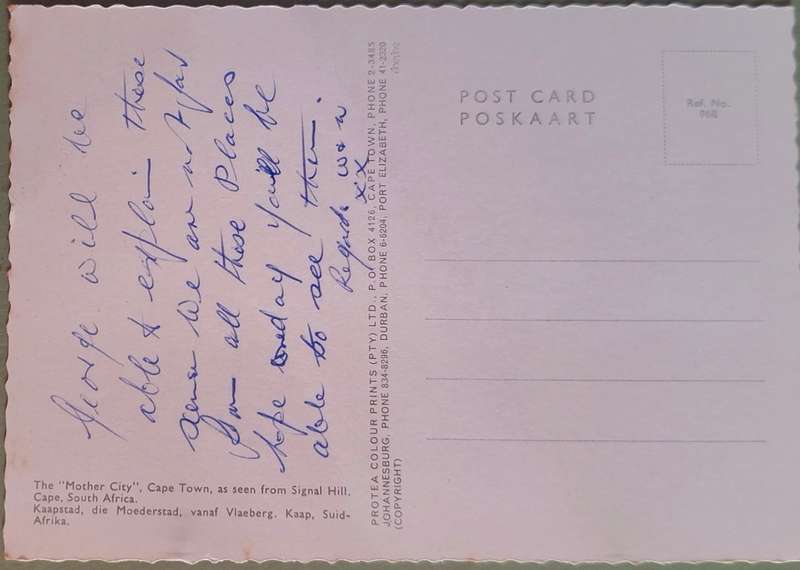 George will be
able to explain these
we are not far
from all these Places
hope oneday you'll be
able to see them.
Regards
xx
The "Mother City", Cape Town, as seen from Signal Hill.
Cape, South Africa.
Kaapstad, die Moederstad, vanaf Vlaeberg. Kaap, Suid-
Afrika.
PROTEA COLOUR PRINTS (PTY) LTD., P.O. BOX 4126, CAPE TOWN, PHONE 2-3485
JOHANNESBURG, PHONE 834-8296, DURBAN, PHONE 6-6204, PORT ELIZABETH, PHONE 41-2320
(COPYRIGHT)
POST CARD
POSKAART
Ref. No.
968